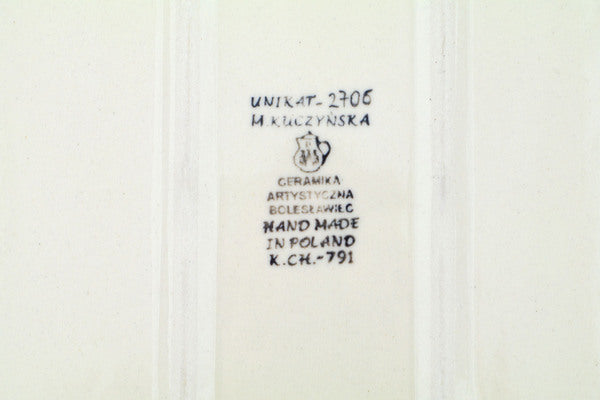 UNIKAT-2706
M.KUCZYŃSKA
CERAMIKA
ARTYSTYCZNA
BOLESŁAWIEC
HAND MADE
IN POLAND
K.CH.-791